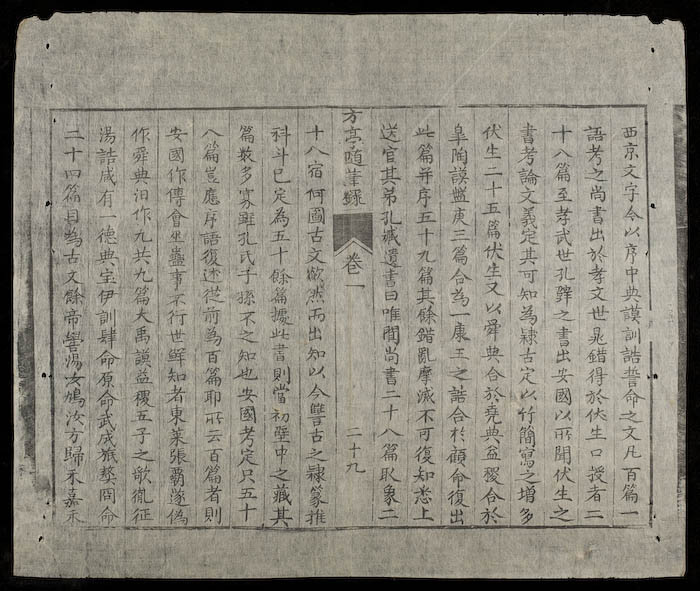 西京文字今以序中典謨訓誥誓命之文凡百篇一
語考之尚書出於孝文世晁錯得於伏生口授者二
十八篇至孝武世孔壁之書出安國以所聞伏生之
書考論文義定其可知為隸古定以竹簡寫之增多
伏生二十五篇伏生又以舜典合於堯典益稷合於
皐陶謨盤庚三篇合為一康王之誥合於顧命復出
此篇并序五十九篇其餘錯亂摩滅不可復知悉上
送官其弟孔臧遺書曰唯聞尚書二十八篇取象二
方亭隨筆錄
卷一
二十九
十八宿何圖古文歘然而出知以今讐古之隸篆推
科斗已定為五十餘篇據此書則當初壁中之藏其
篇數多寡雖孔氏子孫不之知也安國考定只五十
八篇豈應序語復述從前為百篇耶所云百篇者則
安國作傳會巫蠱事不行世鮮知者東萊張覇遂偽
作舜典汨作九共九篇大禹謨益稷五子之歌胤征
湯誥咸有一德典宝伊訓肆命原命武成旅獒冏命
二十四篇目為古文餘帝嚳湯女鳩汝方歸禾嘉禾